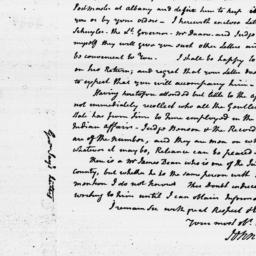 Postmaster at albany and desire him to keep it
you or by your order — I herewith enclose Lett
Schuyler. the Lt. Governor. Mr. Duane. and Judge
myself they will give you such other Letters as
be convenient to You. I shall be happy to
on his Return; and regret that your Letter does
to expect that you will accompany him —
Having heretofore attended but little to the
not immediately recollect who all the Gentle
State has from Time to Time employed on the
Indian affairs. Judge Benson & the Record
are of the number, and they are men on w
whatever it may be, Reliance can be placed
There is a Mr. James Dean who is one of the
County, but whether he be the same person with
mention I do not know. This doubt induces
writing to him until I can obtain Informa
I remain Sir with great Respect &
Your most ob.
John